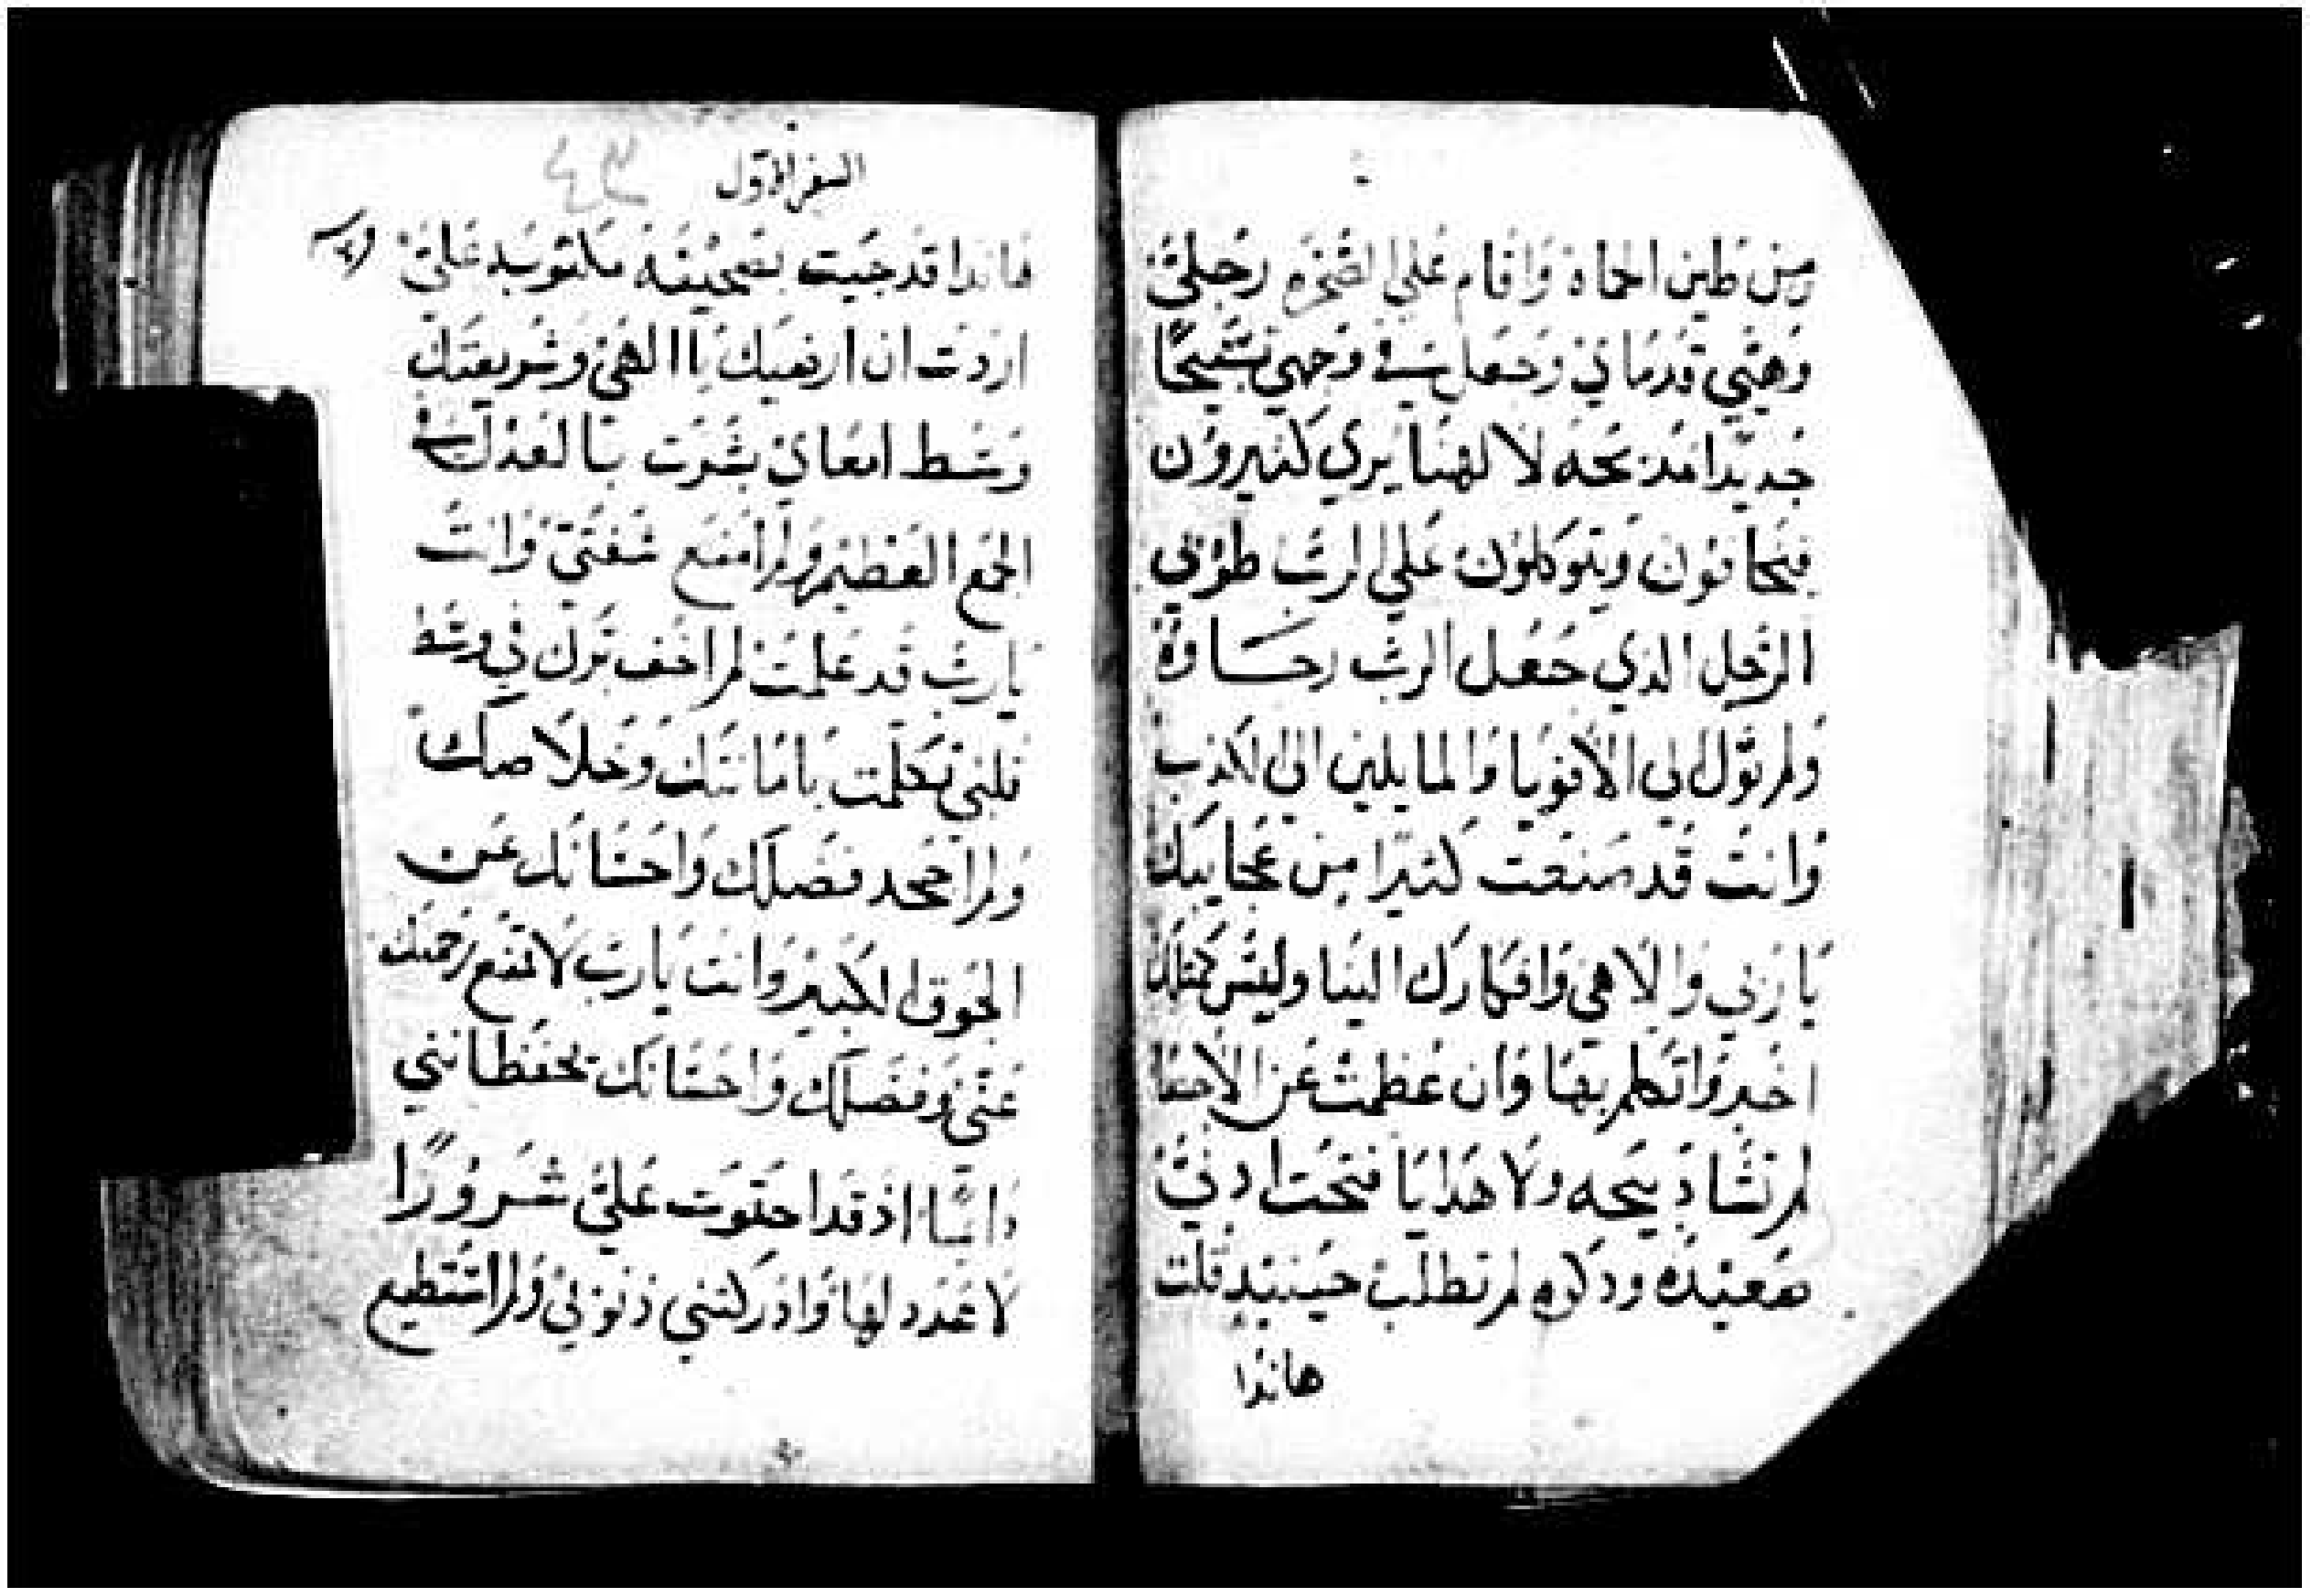 من طين الحماة وَاقام عَلي الصَخرَه رجليَّ
وَهيي قدمَاني وَجعَل في وَجهي تسَبيحًا
جَديدًا مَذبحَه لالهنَا يَري كثيروُن
فيخافوُن وَيتوكلوُن عَلي الربّ طوُبي
الرّجل الذي جَعَل الربّ رجَاوهُ
وَلم تؤَل الي الاقويا وَالمايلين الي الكذب
وَانتَ قَد صَنعت كثيرًا مِن عَجايبك
يَا رَبي وَالاهي وَافكارك الينَا وَليسَ
اخبر وَاتكلم بهَا وَان عَظمت عَن الاحصَا
لم تشَا ذَبيحه ولا هَدايَا فتحَت ادنيَّ
صَعيدَه ودكوه لم تطلبْ حيَنيد قلت
هاندا
السفر الاول
فاندا قد جيَت بصَحيفه مَكتوبه عَليَّ
اردَت ان ارضيَك يَا الهيْ وَشريعَتك
وَسَط امعَاي بشرَت بَالعَدل في
الجَمَع العَظيم وَلم امنَع شفتيَّ وَانتَ
يَاربّ قد عَلمت لم اخَف بَرك في وسَط
قلبي تكلمت بَامَانتَك وَخلاصك
وَلم اجحد فضَلك وَاحسَانَك عَن
الجَوق الكبير وَانت يَاربّ لا تمنع رَحمتك
عَني وَفضَلك وَاحسَانَك يحفظانني
دَايمًا اذ قد احتوَت عَليَّ شروُرًا
لا عَدد لهَا وَادركتني ذنوُبي وَلم استَطيع